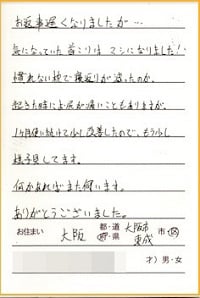 お返事遅くなりましたが…
気になっていた首こりはマシになりました!
慣れない枕で寝返りが減ったのか、
起きた時に上尻が痛いこともありますが、
1ヶ月使い続けて少し改善したので、もう少し
様子見してます。
何かあればまた伺います。
ありがとうございました。
お住まい 大阪 都・道・府・県 大阪市東成 市・区
才)男・女